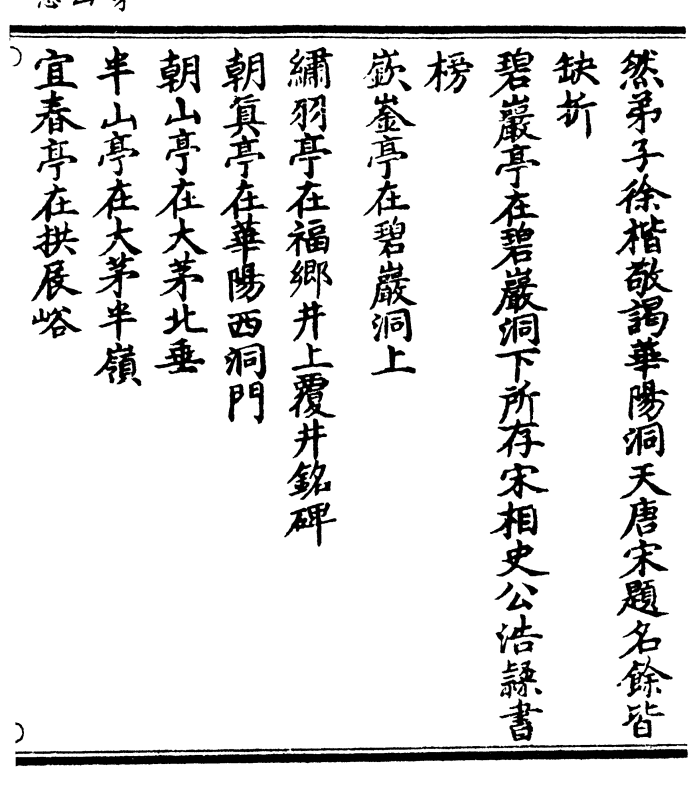 然弟子徐楷敬謁華陽洞天唐宋題名餘皆
缺折
碧巖亭在碧巖洞下所存宋相史公浩隷書
榜
嶔崟亭在碧巖洞上
繡羽亭在福鄉井上覆井銘碑
朝真亭在華陽西洞門
朝山亭在大茅北垂
半山亭在大茅半嶺
宜春亭在拱展峪